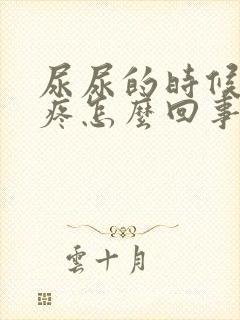 尿尿的時候
疼怎麼回事
雲十月